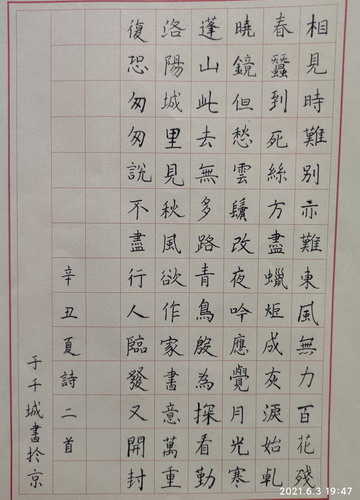 相見時難別亦難東風無力百花殘
春蠶到死絲方盡蠟炬成灰淚始乹
曉鏡但愁雲鬢改夜吟應覺月光寒
蓬山此去無多路青鳥殷為探看勤
洛陽城里見秋風欲作家書意萬重
復恐匆匆說不盡行人臨發又開封
辛丑夏詩二首
于千城書於京
2021.6.3 19:47